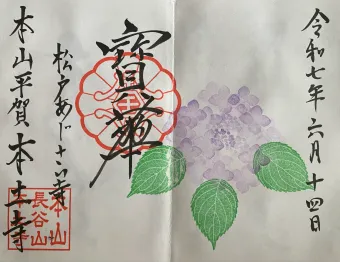 令和七年六月十四日
寳華
松戸あじさい寺
本山平賀 本土寺
本山
長谷山
本土寺